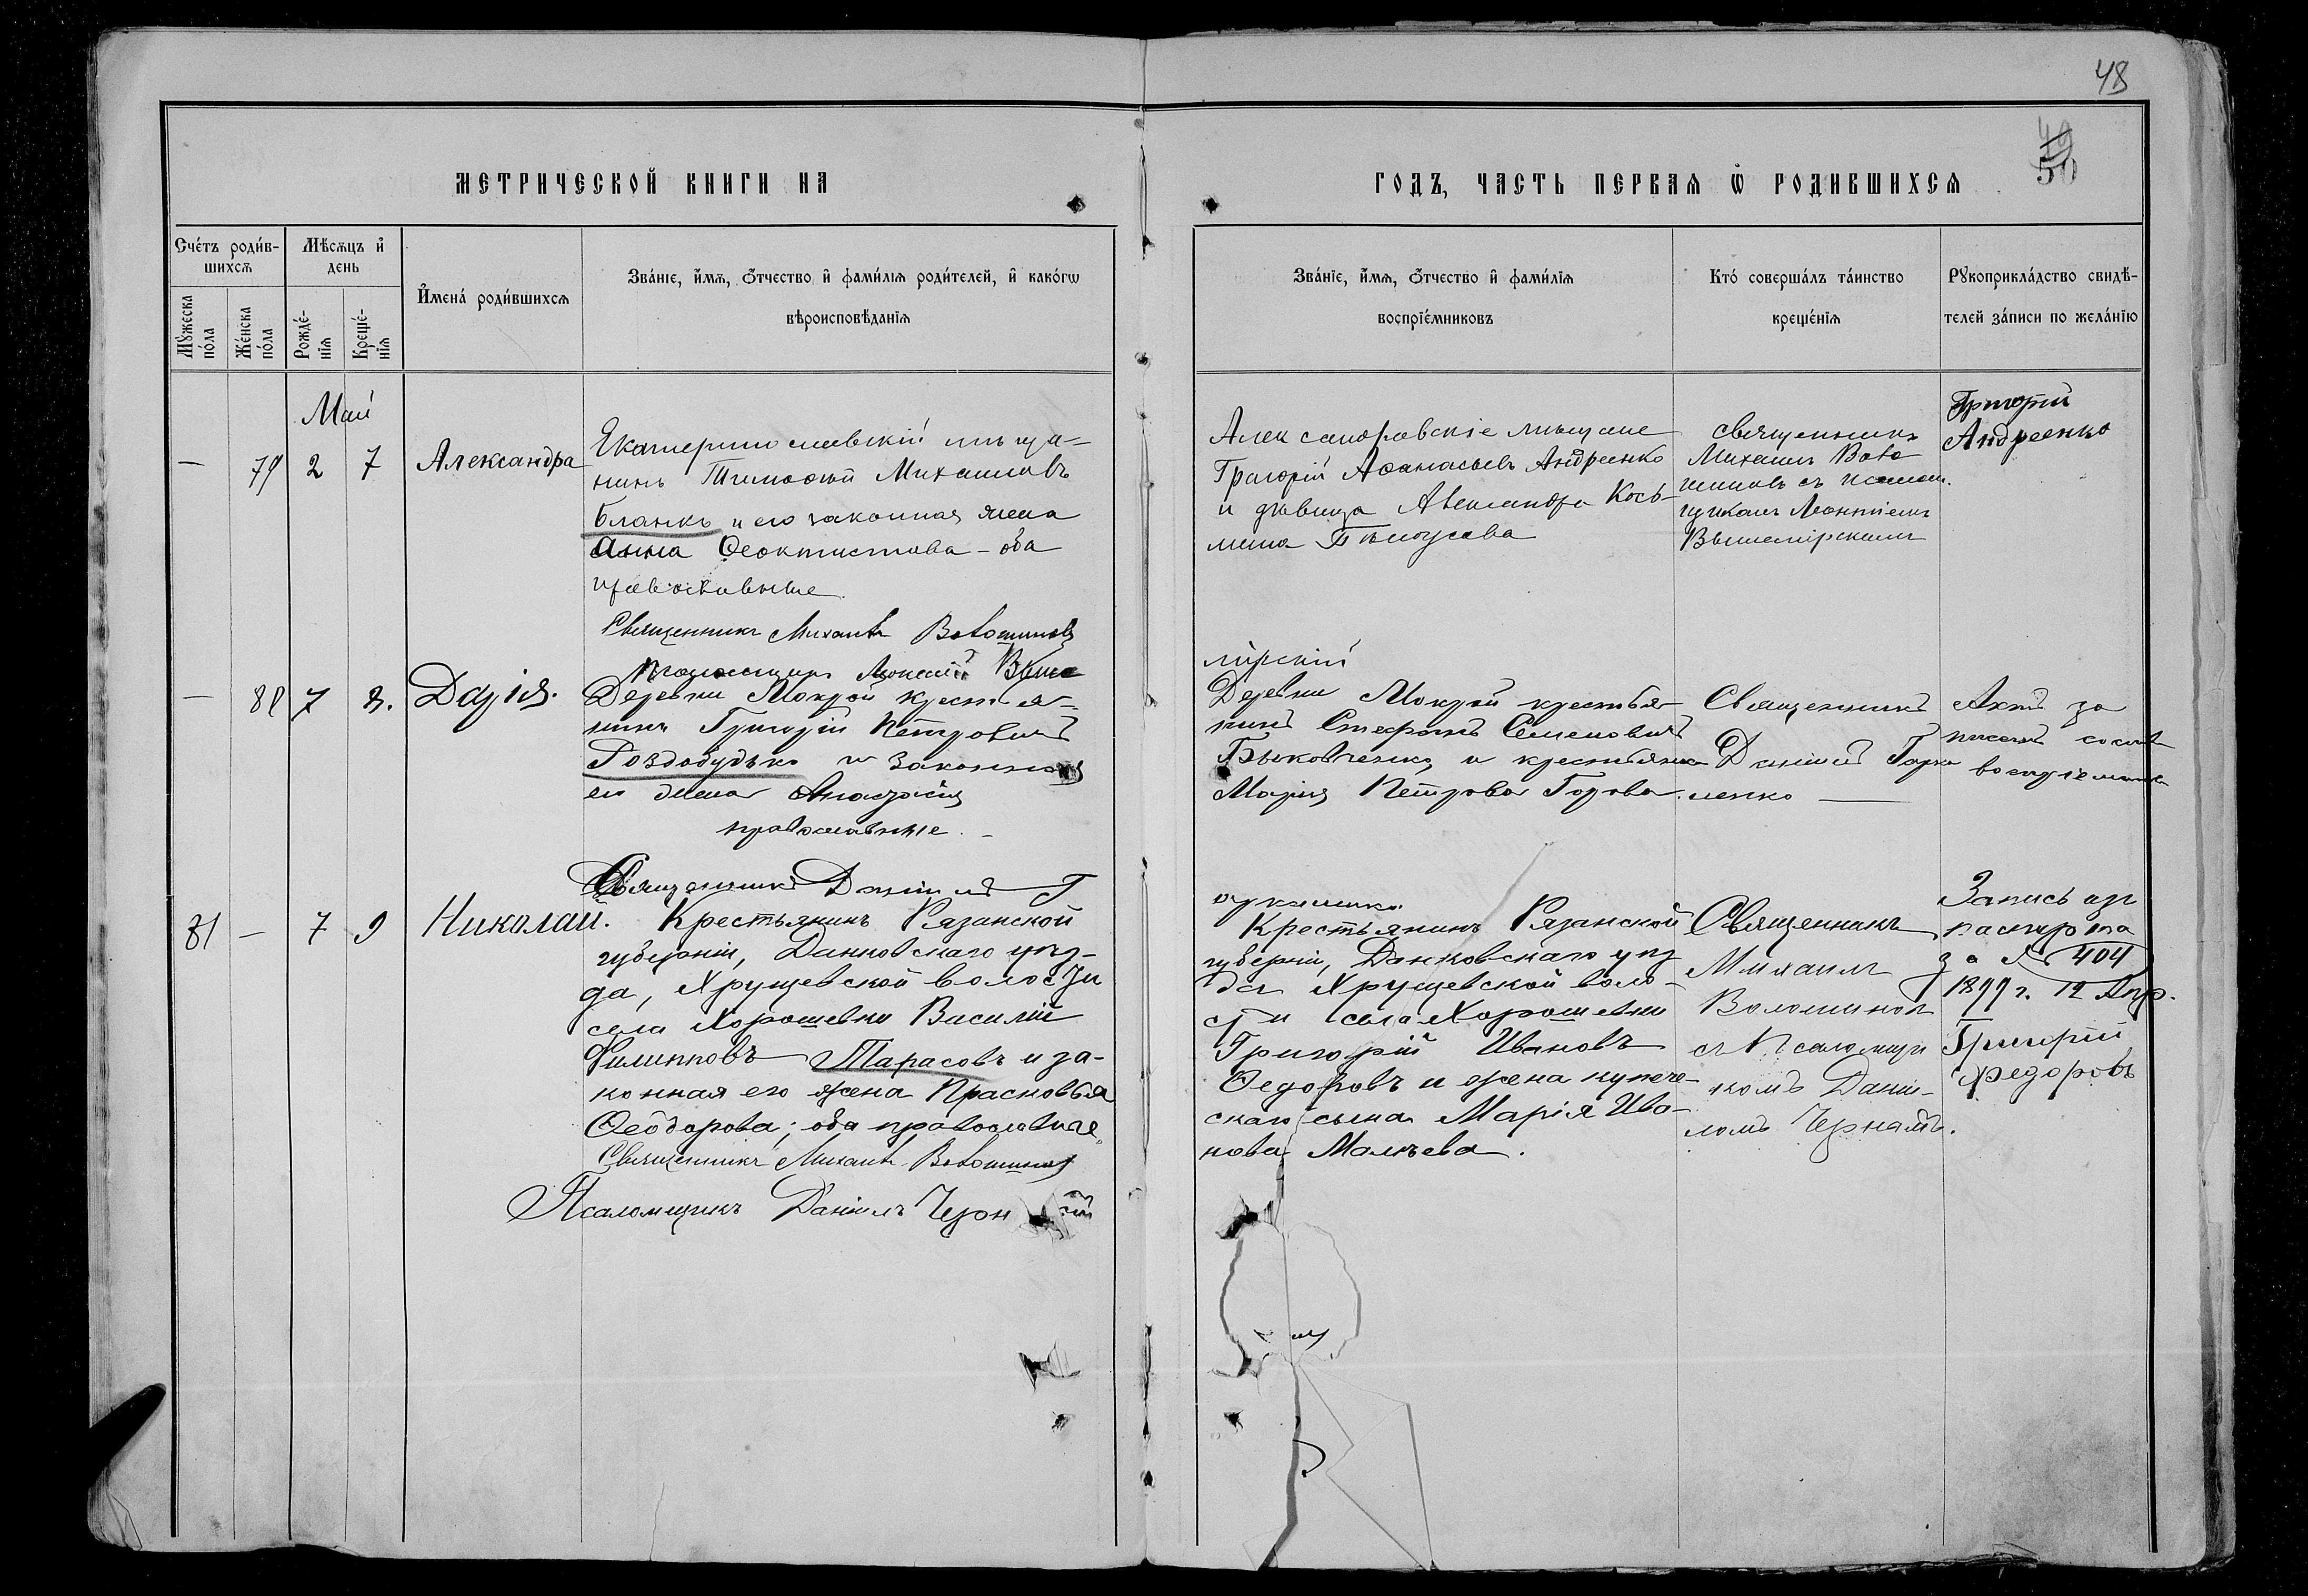 48
49
50
МЕТРИЧЕСКОЙ КНИГИ НА
ГОДЪ, ЧАСТЬ ПЕРВАѦ Ѽ РОДИВШИХСѦ
Счéтъ роди́в-
шихсѧ
Мѣсѧцъ и҆
день
Мꙋ́жеска
по́ла
Же́нска
по́ла
Рожде́-
нїѧ
Креще́-
нїѧ
И҆мена́ роди́вшихсѧ
Зва́нїе, и҆́мѧ, ѻ҆́тчество и҆ фами́лїѧ роди́телей, и҆ како́гѡ
вѣроисповѣ́данїѧ
Зва́нїе, и҆́мѧ, ѻ҆́тчество и҆ фами́лїѧ
воспрїе́мниковъ
Кто́ соверша́лъ та́инство
креще́нїѧ
Рꙋкоприкла́дство свидѣ́-
телей за́писи по жела́нїю
Май
— 79 2 7 Александра
Екатеринославскій мѣща-
нинъ Тимоѳей Михаиловъ
Бланкъ и его законная жена
Анна Ѳеоктистова - оба
православные.
Священникъ Михаилъ Волошиновъ
Псаломщикъ Леонтій Выше
Александровскіе мѣщане
Григорій Аѳанасьевъ Андреенко
и дѣвица Александра Кось-
мина Бѣлоусова
мірскій
Священникъ
Михаилъ Воло
шиновъ съ псалом.
щикомъ Леонтіемъ
Вышемірскимъ
Григорій
Андреенко
— 80 7 8. Дарія.
Деревни Мокрой крестья-
нинъ Григорій Петровичъ
Роздобудько и законная
его жена Анастасія
православные. -
Священникъ Даніилъ Г
Деревни Мокрой крестья-
нинъ Стефанъ Семеновичъ
Быковченко и крестьянка
Марія Петрова Горова.
Священникъ
Даніилъ Гарка
ленко —
Актъ за
писанъ со словъ
воспріемника
81 — 7 9 Николай.
Крестьянинъ Рязанской
губерніи, Данковскаго уѣз-
да, Хрущевской волости
села Хорошевки Василій
Филипповъ Тарасовъ и за-
конная его жена Прасковья
Ѳеодорова; оба православные.
Священникъ Михаилъ Волошиновъ
Псаломщикъ Даніилъ Черн
Крестьянинъ Рязанской
губерніи, Данковскаго уѣз
да Хрущевской воло-
сти села Хорошевки
Григорій Ивановъ
Ѳедоровъ и жена купече-
скаго сына Марія Ива-
нова Малѣева.
Священникъ
Михаилъ
Волошинов
съ Псаломщи
комъ Дани-
ломъ
Запись изъ
паспорта
за № 404
1899 г. 12 Апр.
Григорій
Федоровъ